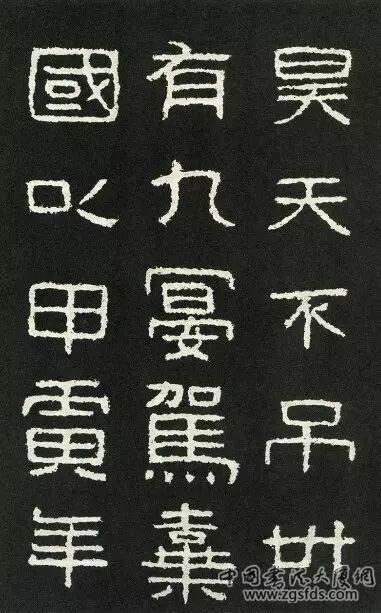 昊天不吊卅
有九宴駕棄
國以甲寅年
www.zgsfds.com